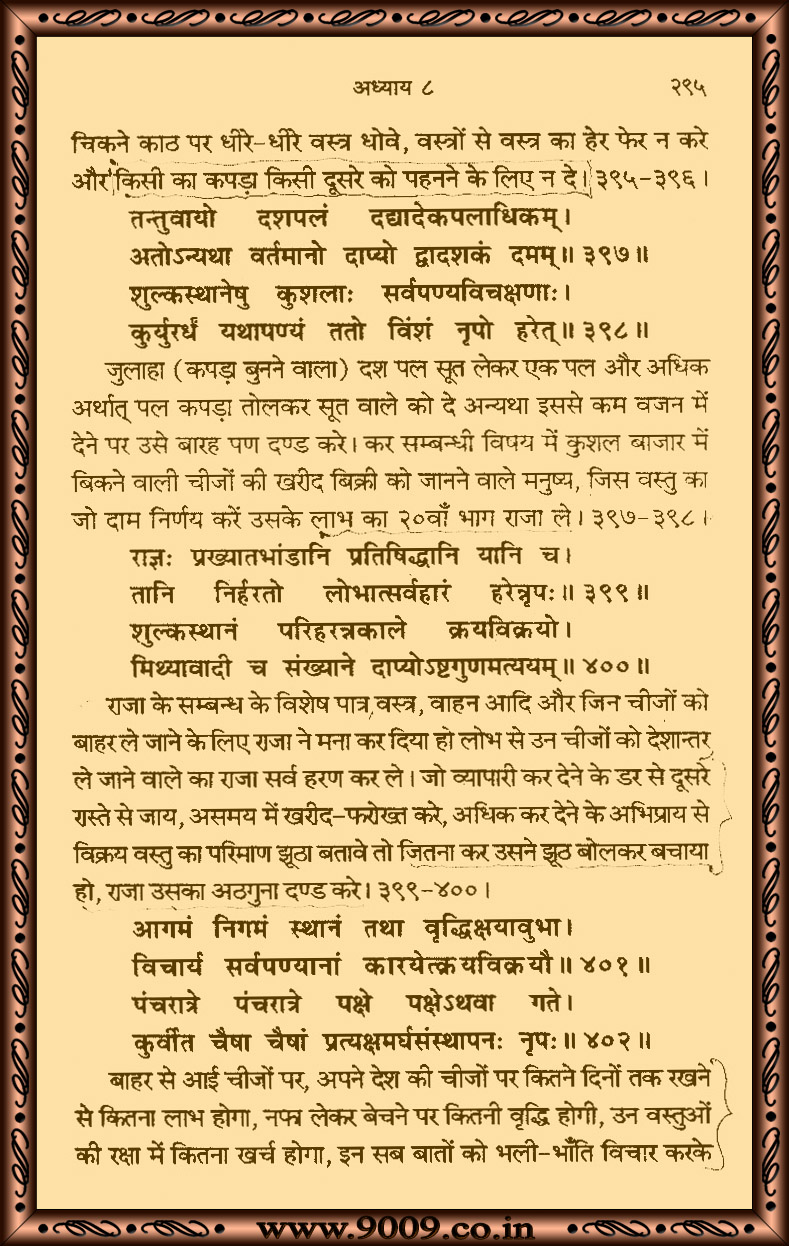 अध्याय ८ २९५
चिकने काठ पर धीरे-धीरे वस्त्र धोवे, वस्त्रों से वस्त्र का हेर फेर न करे
और किसी का कपड़ा किसी दूसरे को पहनने के लिए न दे। ३९५-३९६।
तन्तुवायो दशपलं दद्यादेकपलाधिकम्।
अतोऽन्यथा वर्तमानो दाप्यो द्वादशकं दमम्॥ ३९७॥
शुल्कस्थानेषु कुशलाः सर्वपण्यविचक्षणाः।
कुर्युरर्धं यथापण्यं ततो विंशं नृपो हरेत्॥ ३९८॥
जुलाहा (कपड़ा बुनने वाला) दश पल सूत लेकर एक पल और अधिक
अर्थात् पल कपड़ा तोलकर सूत वाले को दे अन्यथा इससे कम वजन में
देने पर उसे बारह पण दण्ड करे। कर सम्बन्धी विषय में कुशल बाजार में
बिकने वाली चीजों की खरीद बिक्री को जानने वाले मनुष्य, जिस वस्तु का
जो दाम निर्णय करें उसके लाभ का २०वाँ भाग राजा ले। ३९७-३९८।
राज्ञः प्रख्यातभांडानि प्रतिषिद्धानि यानि च।
तानि निर्हरतो लोभात्सर्वहारं हरेन्नृपः॥ ३९९॥
शुल्कस्थानं परिहरन्नकाले क्रयविक्रयो।
मिथ्यावादी च संख्याने दाप्योऽष्टगुणमत्ययम्॥ ४००॥
राजा के सम्बन्ध के विशेष पात्र, वस्त्र, वाहन आदि और जिन चीजों को
बाहर ले जाने के लिए राजा ने मना कर दिया हो लोभ से उन चीजों को देशान्तर
ले जाने वाले का राजा सर्व हरण कर ले। जो व्यापारी कर देने के डर से दूसरे
रास्ते से जाय, असमय में खरीद-फरोख्त करे, अधिक कर देने के अभिप्राय से
विक्रय वस्तु का परिमाण झूठा बतावे तो जितना कर उसने झूठ बोलकर बचाया
हो, राजा उसका अठगुना दण्ड करे। ३९९-४००।
आगमं निगमं स्थानं तथा वृद्धिक्षयावुभा।
विचार्य सर्वपण्यानां कारयेत्क्रयविक्रयौ॥ ४०१॥
पंचरात्रे पंचरात्रे पक्षे पक्षेऽथवा गते।
कुर्वीत चैषा चैषां प्रत्यक्षमर्घसंस्थापनः नृपः॥ ४०२॥
बाहर से आई चीजों पर, अपने देश की चीजों पर कितने दिनों तक रखने
से कितना लाभ होगा, नफा लेकर बेचने पर कितनी वृद्धि होगी, उन वस्तुओं
की रक्षा में कितना खर्च होगा, इन सब बातों को भली-भाँति विचार करके
www.9009.co.in